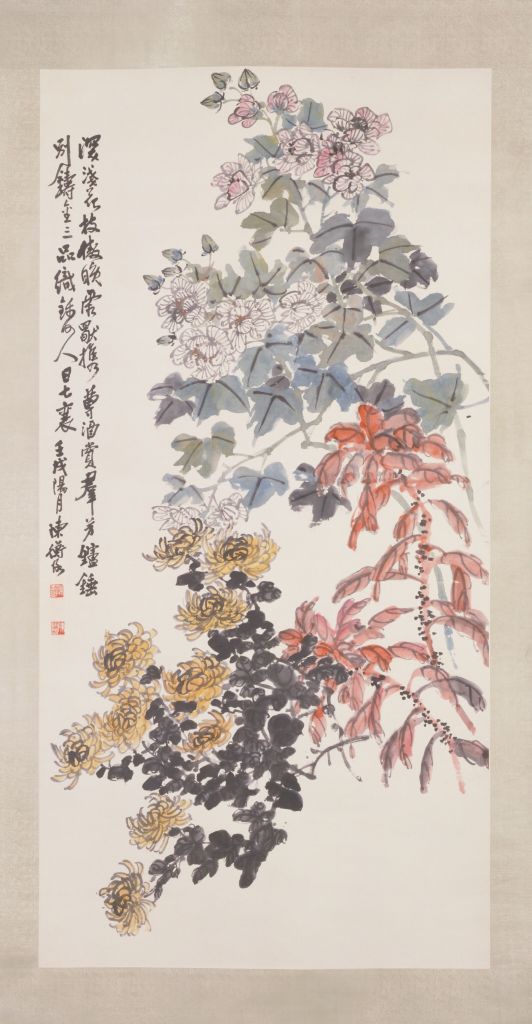 深淺花枝傲晚雲獸攜尊酒賞羣芳鑪錘
別鑄金三品織錦何人日七襄 壬戌陽月陳衡恪